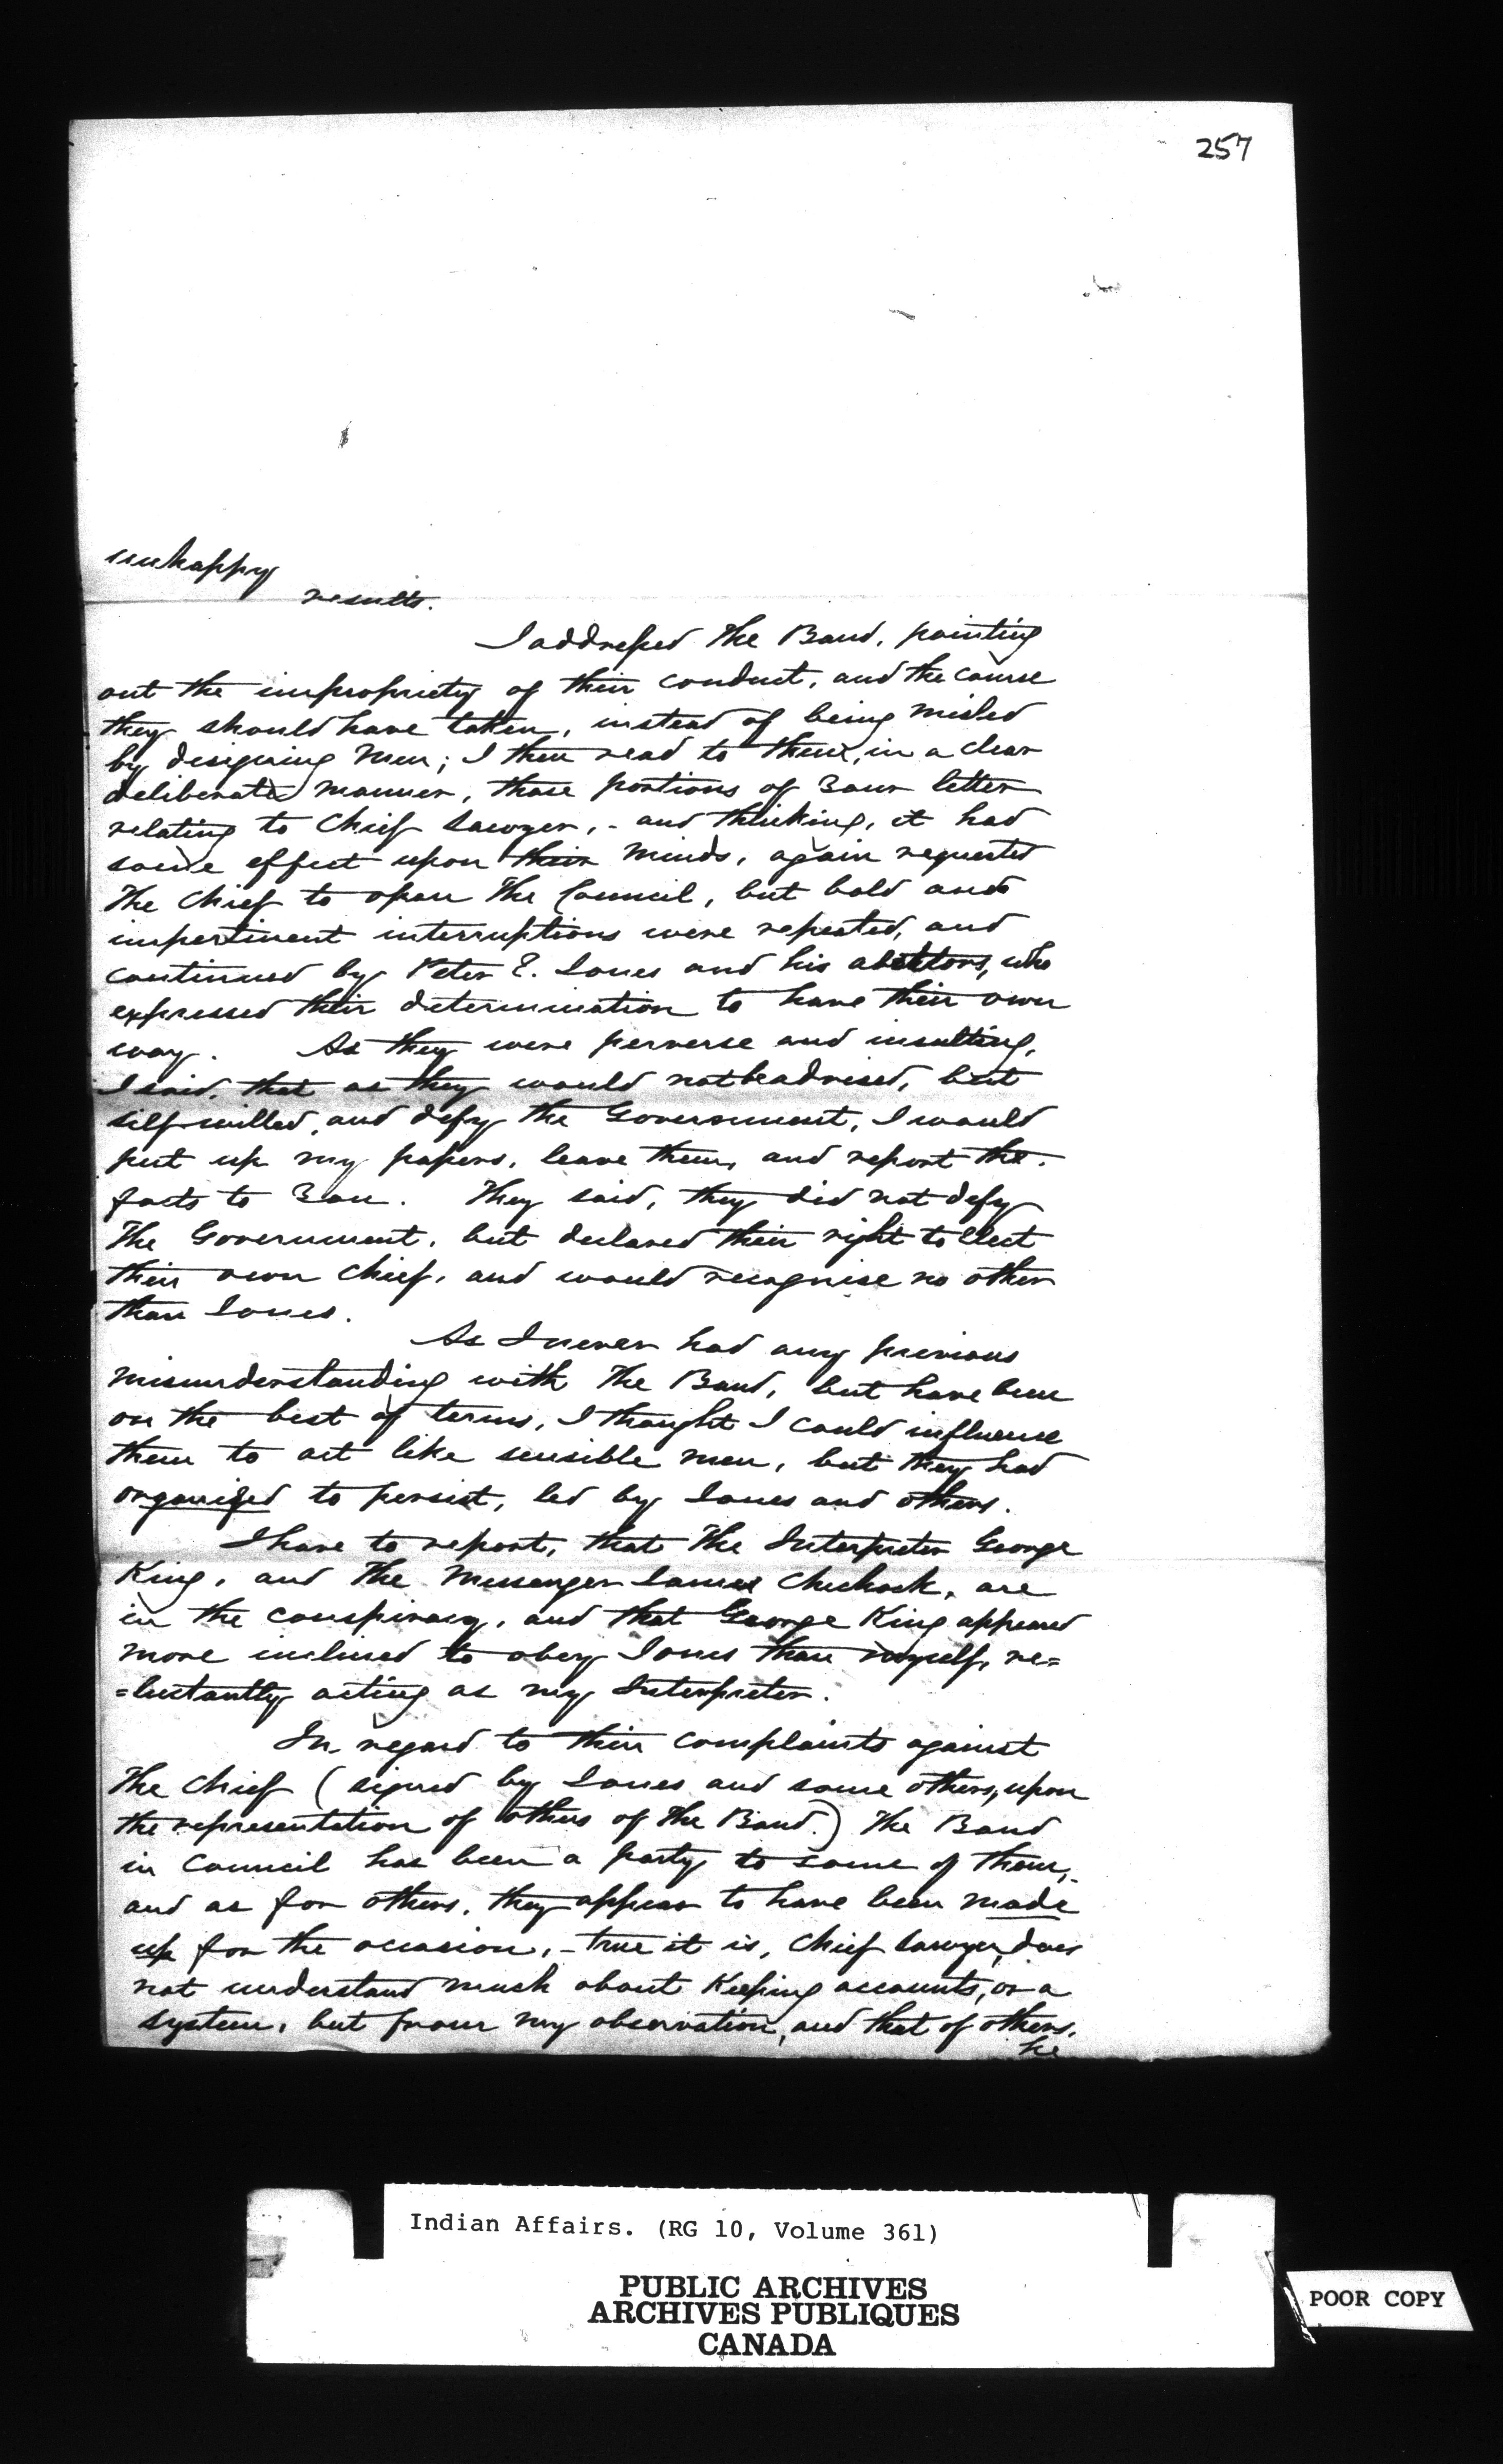 257
unhappy
results.
I addressed the Band, pointing
out the impropriety of their conduct, and the course
they should have taken, instead of being misled
by designing men; I then read to them, in a clear
deliberate manner, those portions of Your letter
relating to Chief Sawyer, - and thinking, it had
some effect upon their minds, again requested
the Chief to open the Council, but bold and
impertinent interruptions were repeated, and
continued by Peter E. Jones and his abettors, who
expressed their determination to have their own
way. As they were perverse and insulting,
I said, that as they would not be advised, but
self-willed, and defy the Government, I would
put up my papers, leave them, and report the
facts to You. They said, they did not defy
the Government, but declared their right to elect
their own Chief, and would recognise no other
than Jones.
As I never had any previous
misunderstanding with the Band, but have been
on the best of terms, I thought I could influence
them to act like sensible men, but they had
organized to persist, led by Jones and others.
I have to report, that the Interpreter George
King, and the Messenger James Chechock, are
in the conspiracy, and that George King appeared
more inclined to obey Jones than myself, re=
=luctantly acting as my Interpreter.
In regard to their complaints against
the Chief (signed by Jones and some others, upon
the representation of others of the Band.) the Band
in Council has been a party to some of them,-
and as for others, they appear to have been made
up for the occasion, - true it is, Chief Sawyer, does
not understand much about Keeping accounts, or a
system, but from my observation, and that of others,
he
Indian Affairs. (RG 10, Volume 361)
PUBLIC ARCHIVES
ARCHIVES PUBLIQUES
CANADA
POOR COPY